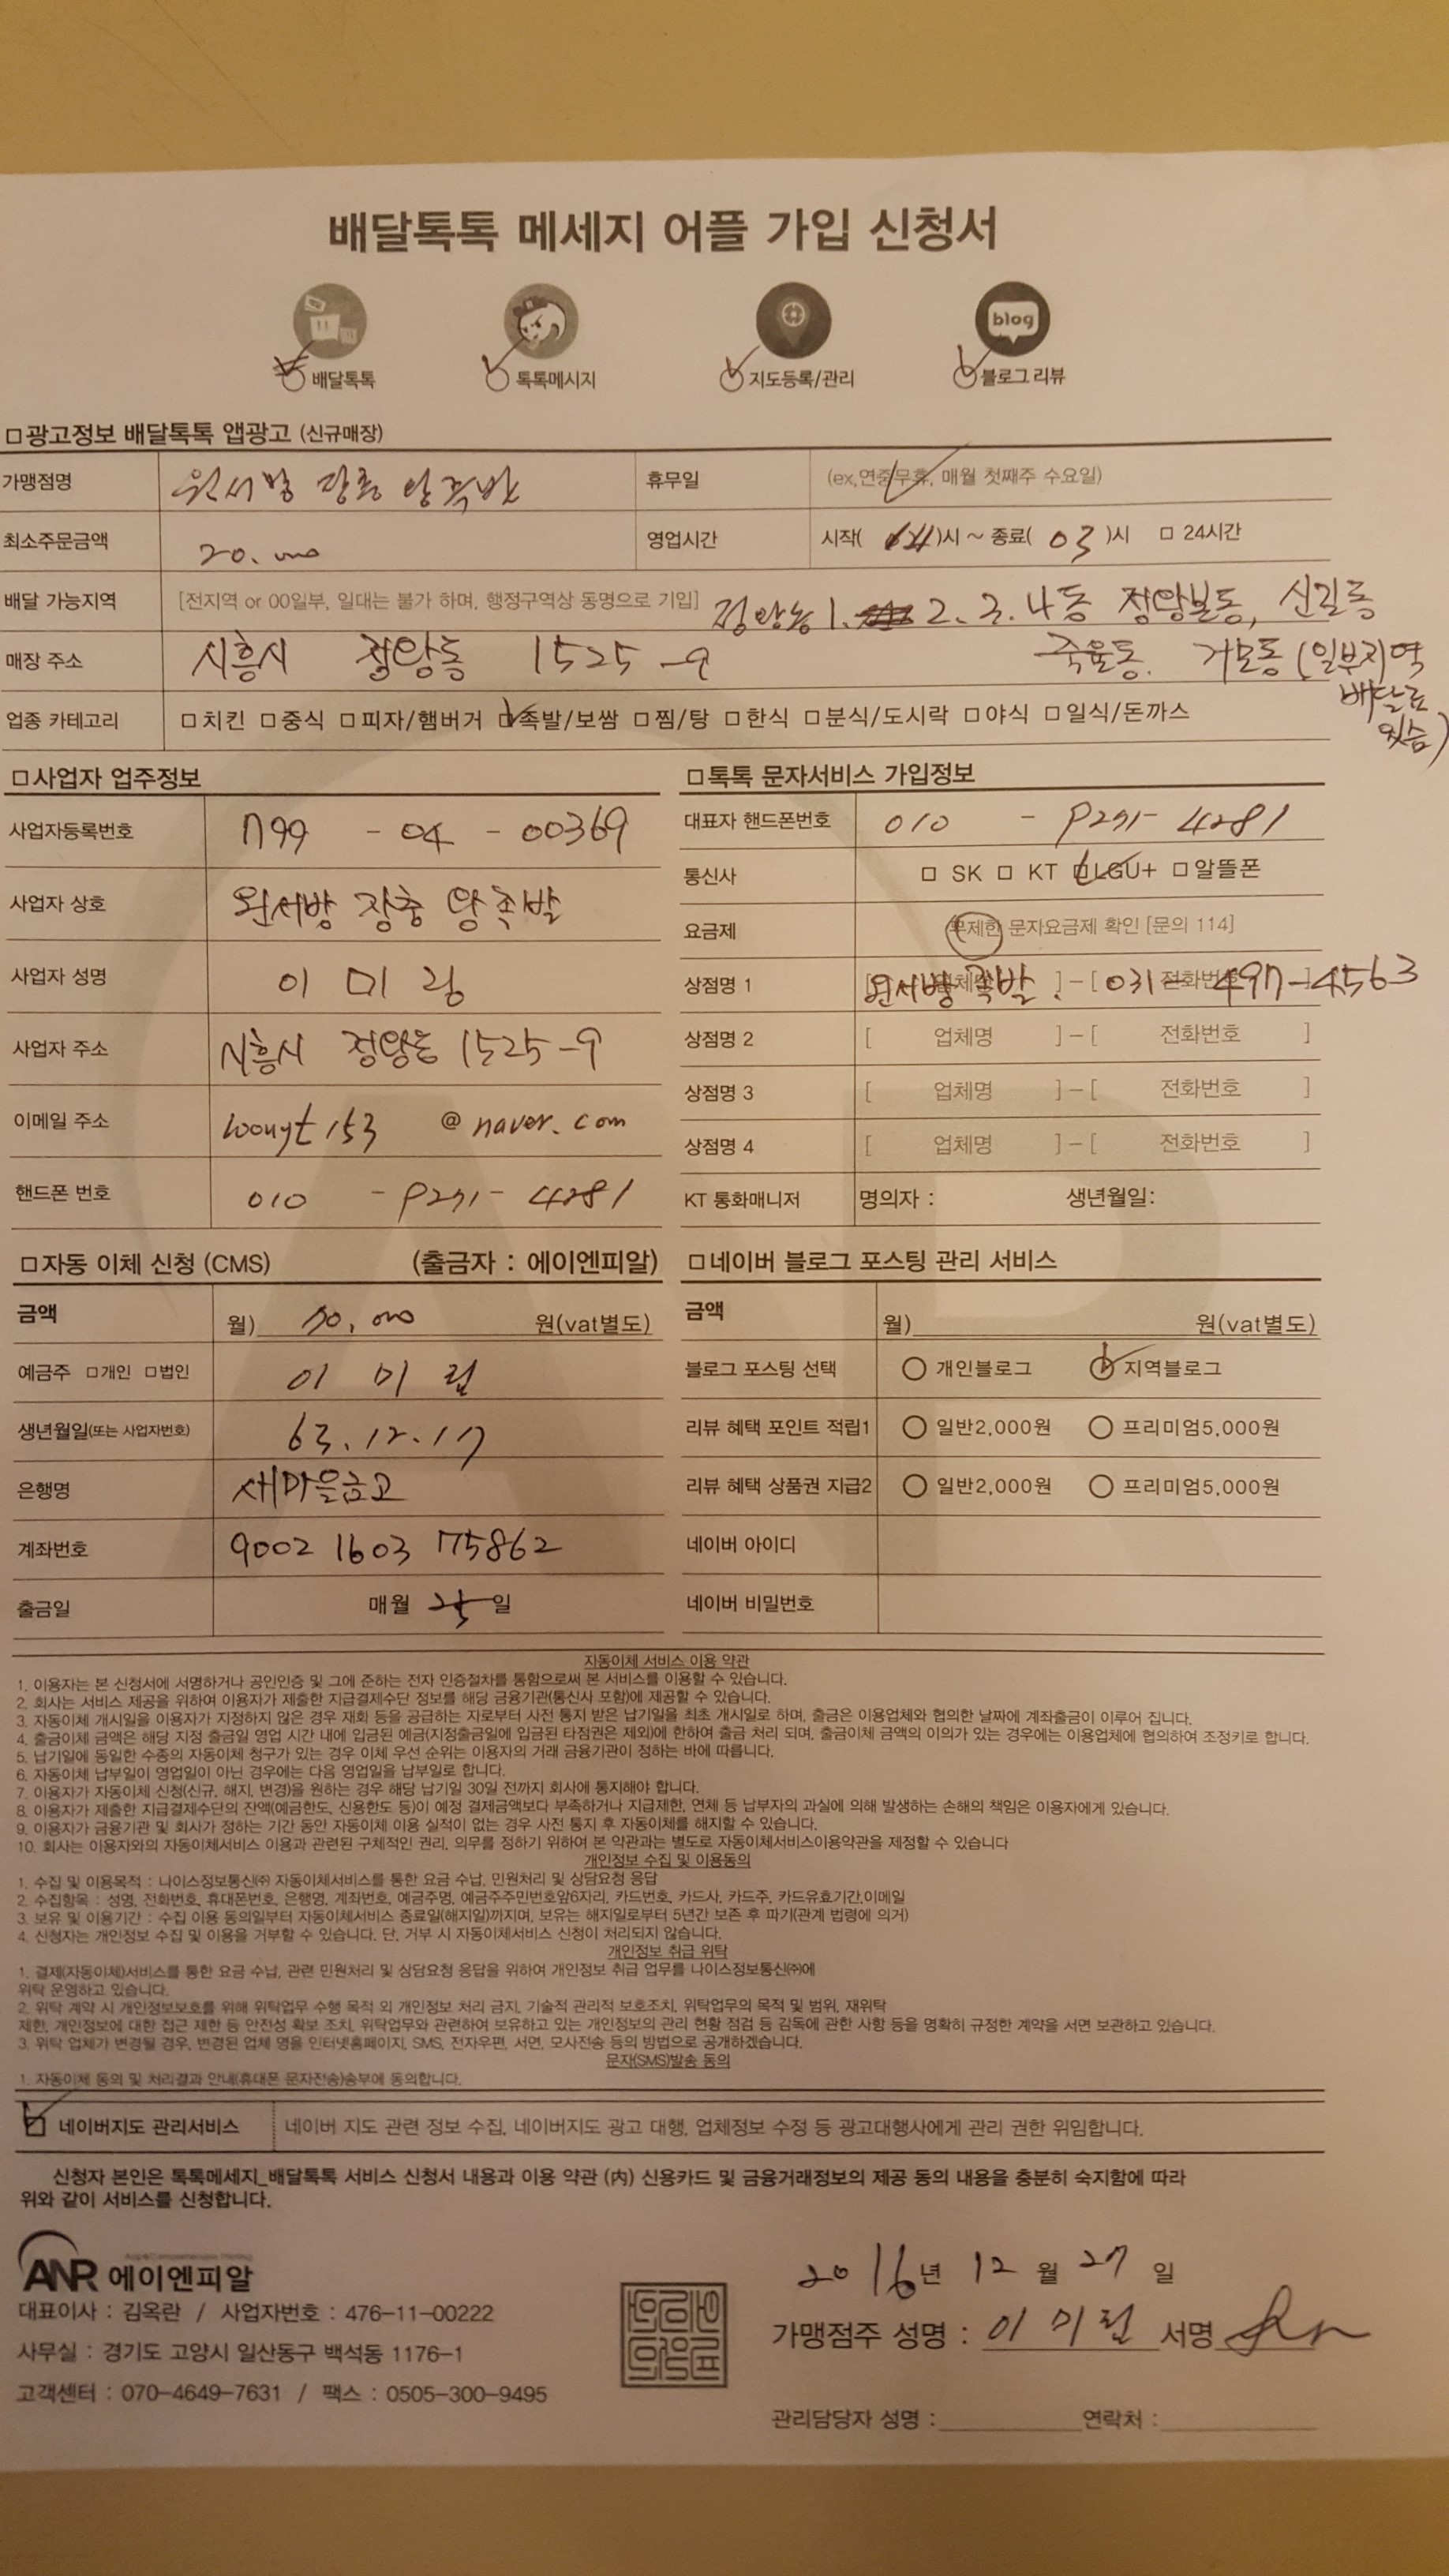 배달톡톡 메세지 어플 가입 신청서
배달톡톡 톡톡메시지 지도등록/관리 blog 블로그 리뷰
□광고정보 배달톡톡 앱광고 (신규매장)
가맹점명 원서방 장충 왕족발 휴무일 (ex,연중무휴, 매월 첫째주 수요일)
최소주문금액 20.000 영업시간 시작( )시 ~ 종료( 03 )시 □ 24시간
배달 가능지역 [전지역 or 00일부, 일대는 불가 하며, 행정구역상 동명으로 기입] 정왕동 1. 2. 3. 4동 정왕본동, 신길동
매장 주소 시흥시 정왕동 1525-9 죽율동. 거모동 (일부지역
배달료
있슴)
업종 카테고리 □치킨 □중식 □피자/햄버거 □족발/보쌈 □찜/탕 □한식 □분식/도시락 □야식 □일식/돈까스
□사업자 업주정보
사업자등록번호 799 - 04 - 00369
사업자 상호 원서방 장충 왕족발
사업자 성명 이 미
사업자 주소 시흥시 정왕동 1525-9
이메일 주소 @ naver.com
핸드폰 번호 010 - 4281
□톡톡 문자서비스 가입정보
대표자 핸드폰번호 010 - 4281
통신사 □ SK □ KT □LGU+ □알뜰폰
요금제 무제한 문자요금제 확인 [문의 114]
상점명 1 [원서방 족발 ] - [ 031 - 497-4563
상점명 2 [ 업체명 ] - [ 전화번호 ]
상점명 3 [ 업체명 ] - [ 전화번호 ]
상점명 4 [ 업체명 ] - [ 전화번호 ]
KT 통화매니저 명의자 : 생년월일:
□자동 이체 신청 (CMS) (출금자 : 에이엔피알)
금액 월) 70,000 원(vat별도)
예금주 □개인 □법인 이 미
생년월일(또는 사업자번호) 63.12.17
은행명 새마을금고
계좌번호 9002 1603 75862
출금일 매월 25 일
□네이버 블로그 포스팅 관리 서비스
금액 월) 원(vat별도)
블로그 포스팅 선택 개인블로그 지역블로그
리뷰 혜택 포인트 적립1 일반2,000원 프리미엄5,000원
리뷰 혜택 상품권 지급2 일반2,000원 프리미엄5,000원
네이버 아이디
네이버 비밀번호
자동이체 서비스 이용 약관
1. 이용자는 본 신청서에 서명하거나 공인인증 및 그에 준하는 전자 인증절차를 통함으로써 본 서비스를 이용할 수 있습니다.
2. 회사는 서비스 제공을 위하여 이용자가 제출한 지급결제수단 정보를 해당 금융기관(통신사 포함)에 제공할 수 있습니다.
3. 자동이체 개시일을 이용자가 지정하지 않은 경우 재화 등을 공급하는 자로부터 사전 통지 받은 납기일을 최초 개시일로 하며, 출금은 이용업체와 협의한 날짜에 계좌출금이 이루어 집니다.
4. 출금이체 금액은 해당 지정 출금일 영업 시간 내에 입금된 예금(지정출금일에 입금된 타점권은 제외)에 한하여 출금 처리 되며, 출금이체 금액의 이의가 있는 경우에는 이용업체에 협의하여 조정키로 합니다.
5. 납기일에 동일한 수종의 자동이체 청구가 있는 경우 이체 우선 순위는 이용자의 거래 금융기관이 정하는 바에 따릅니다.
6. 자동이체 납부일이 영업일이 아닌 경우에는 다음 영업일을 납부일로 합니다.
7. 이용자가 자동이체 신청(신규, 해지, 변경)을 원하는 경우 해당 납기일 30일 전까지 회사에 통지해야 합니다.
8. 이용자가 제출한 지급결제수단의 잔액(예금한도, 신용한도 등)이 예정 결제금액보다 부족하거나 지급제한, 연체 등 납부자의 과실에 의해 발생하는 손해의 책임은 이용자에게 있습니다.
9. 이용자가 금융기관 및 회사가 정하는 기간 동안 자동이체 이용 실적이 없는 경우 사전 통지 후 자동이체를 해지할 수 있습니다.
10. 회사는 이용자와의 자동이체서비스 이용과 관련된 구체적인 권리, 의무를 정하기 위하여 본 약관과는 별도로 자동이체서비스이용약관을 제정할 수 있습니다
개인정보 수집 및 이용동의
1. 수집 및 이용목적 : 나이스정보통신㈜ 자동이체서비스를 통한 요금 수납, 민원처리 및 상담요청 응답
2. 수집항목 : 성명, 전화번호, 휴대폰번호, 은행명, 계좌번호, 예금주명, 예금주주민번호앞6자리, 카드번호, 카드사, 카드주, 카드유효기간,이메일
3. 보유 및 이용기간 : 수집 이용 동의일부터 자동이체서비스 종료일(해지일)까지며, 보유는 해지일로부터 5년간 보존 후 파기(관계 법령에 의거)
4. 신청자는 개인정보 수집 및 이용을 거부할 수 있습니다. 단, 거부 시 자동이체서비스 신청이 처리되지 않습니다.
개인정보 취급 위탁
1. 결제(자동이체)서비스를 통한 요금 수납, 관련 민원처리 및 상담요청 응답을 위하여 개인정보 취급 업무를 나이스정보통신㈜에
위탁 운영하고 있습니다.
2. 위탁 계약 시 개인정보보호를 위해 위탁업무 수행 목적 외 개인정보 처리 금지, 기술적 관리적 보호조치, 위탁업무의 목적 및 범위, 재위탁
제한, 개인정보에 대한 접근 제한 등 안전성 확보 조치, 위탁업무와 관련하여 보유하고 있는 개인정보의 관리 현황 점검 등 감독에 관한 사항 등을 명확히 규정한 계약을 서면 보관하고 있습니다.
3. 위탁 업체가 변경될 경우, 변경된 업체 명을 인터넷홈페이지, SMS, 전자우편, 서면, 모사전송 등의 방법으로 공개하겠습니다.
문자(SMS)발송 동의
1. 자동이체 동의 및 처리결과 안내(휴대폰 문자전송)송부에 동의합니다.
□ 네이버지도 관리서비스 네이버 지도 관련 정보 수집, 네이버지도 광고 대행, 업체정보 수정 등 광고대행사에게 관리 권한 위임합니다.
신청자 본인은 톡톡메세지_배달톡톡 서비스 신청서 내용과 이용 약관 (內) 신용카드 및 금융거래정보의 제공 동의 내용을 충분히 숙지함에 따라
위와 같이 서비스를 신청합니다.
ANR 에이엔피알
대표이사 : 김옥란 / 사업자번호 : 476-11-00222
사무실 : 경기도 고양시 일산동구 백석동 1176-1
고객센터 : 070-4649-7631 / 팩스 : 0505-300-9495
2016년 12 월 27 일
가맹점주 성명 : 이 미 서명
관리담당자 성명 : 연락처 :